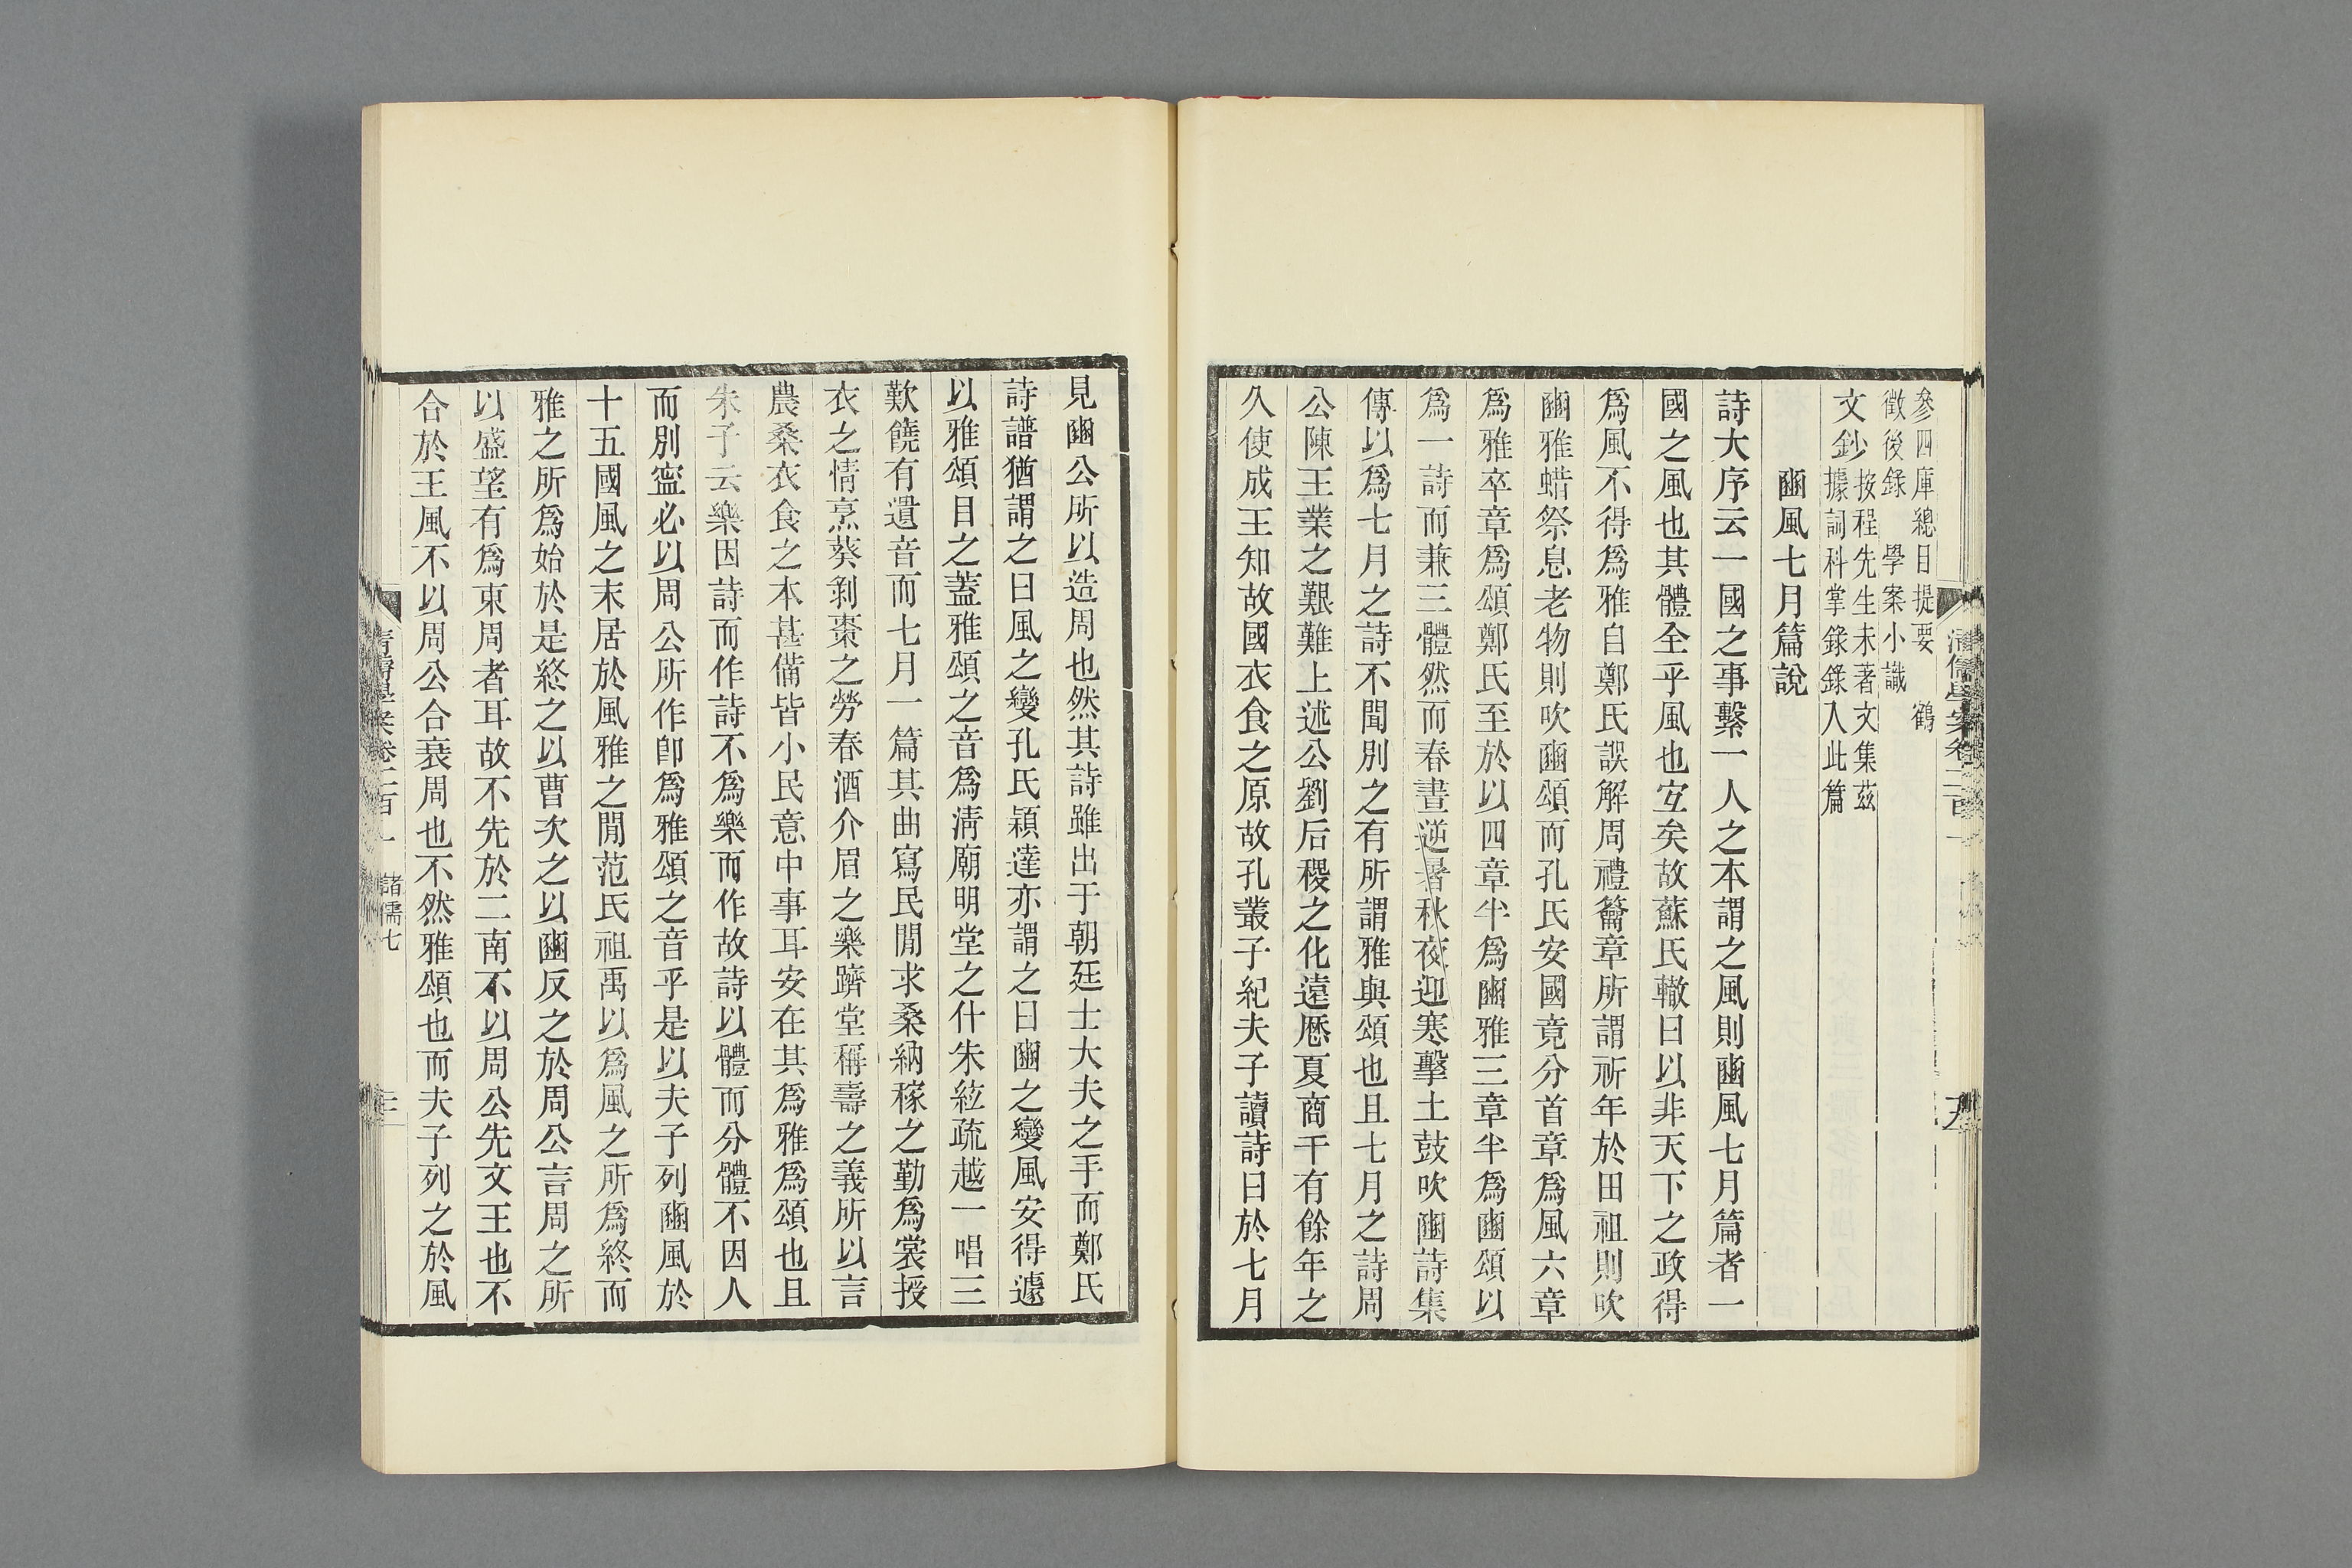 參四庫總目提要　鶴
徵後錄　學案小識
文鈔　按程先生未著文集茲
據詞科掌錄錄入此篇
豳風七月篇說
詩大序云一國之事繫一人之本謂之風則豳風七月篇者一
國之風也其體全乎風也宐矣故蘇氏轍曰以非天下之政得
爲風不得爲雅自鄭氏誤解周禮籥章所謂祈年於田祖則吹
豳雅蜡祭息老物則吹豳頌而孔氏安國竟分首章爲風六章
爲雅卒章爲頌鄭氏至於以四章半爲豳雅三章半爲豳頌以
爲一詩而兼三體然而春晝逆暑秋夜迎寒擊土鼓吹豳詩集
傳以爲七月之詩不聞別之有所謂雅與頌也且七月之詩周
公陳王業之艱難上述公劉后稷之化遠歷夏商千有餘年之
久使成王知故國衣食之原故孔叢子紀夫子讀詩曰於七月
見豳公所以造周也然其詩雖出于朝廷士大夫之手而鄭氏
詩譜猶謂之曰風之變孔氏穎達亦謂之曰豳之變風安得遽
以雅頌目之蓋雅頌之音爲淸廟明堂之什朱絃疏越一唱三
歎饒有遺音而七月一篇其曲寫民閒求桑納稼之勤爲裳授
衣之情烹葵剝棗之勞春酒介眉之樂躋堂稱壽之義所以言
農桑衣食之本甚備皆小民意中事耳安在其爲雅爲頌也且
朱子云樂因詩而作詩不爲樂而作故詩以體而分體不因人
而別寧必以周公所作卽爲雅頌之音乎是以夫子列豳風於
十五國風之末居於風雅之閒范氏祖禹以爲風之所爲終而
雅之所爲始於是終之以曹次之以豳反之於周公言周之所
以盛望有爲東周者耳故不先於二南不以周公先文王也不
合於王風不以周公合衰周也不然雅頌也而夫子列之於風
清儒學案卷二百一
諸儒七